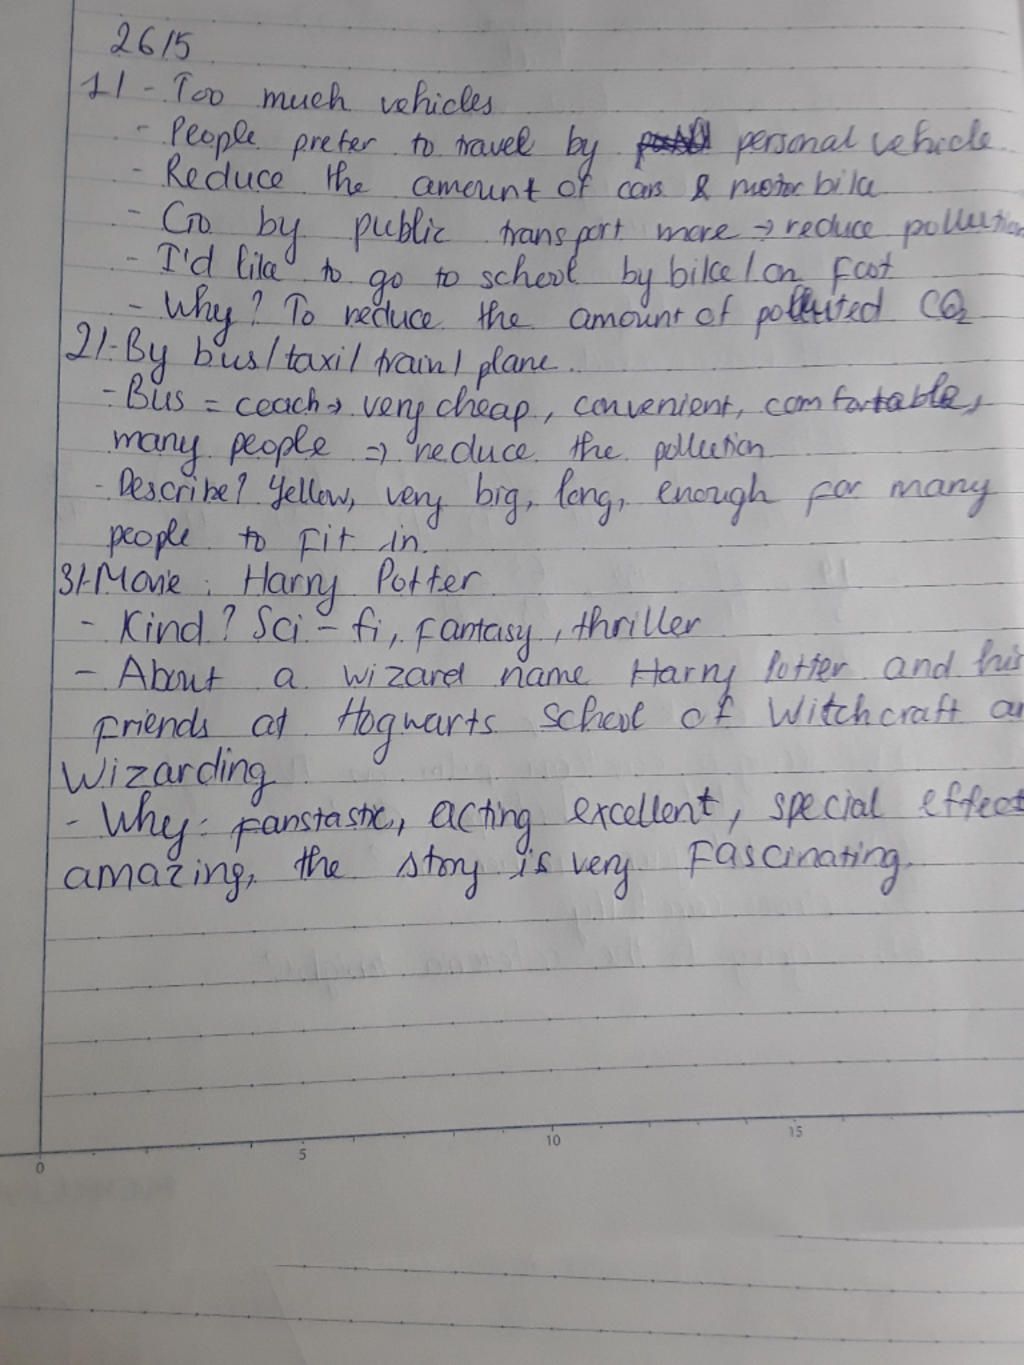 26/5
1/ - Too much vehicles
- People prefer to travel by personal vehicle
- Reduce the amount of cars & motorbike
- Go by public transport more → reduce pollution
- I'd like to go to school by bike / on foot
- Why? To reduce the amount of polluted CO2
2/- By bus / taxi / train / plane.
- Bus = coach → very cheap, convenient, comfortable,
many people => reduce the pollution
- Describe? Yellow, very big, long, enough for many
people to fit in.
3/- Movie: Harry Potter
- Kind? Sci - fi, fantasy, thriller
- About a wizard name Harry Potter and his
friends at Hogwarts School of Witchcraft
Wizarding
- Why: fanstastic, acting excellent, special effect
amazing, the story is very fascinating.
0 5 10 15